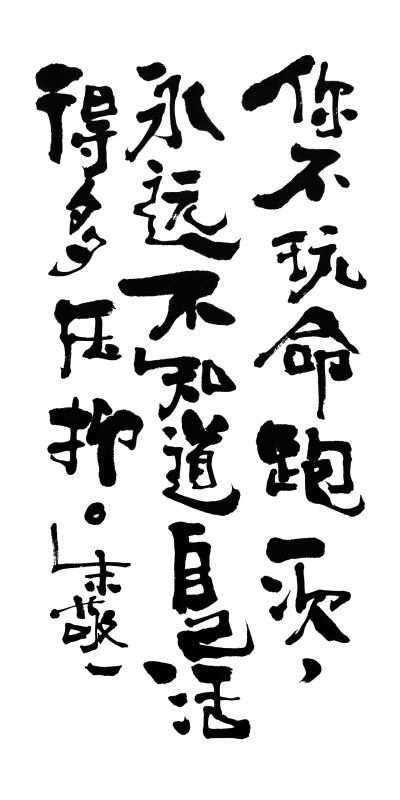 你不玩命跑一次，
永远不知道自己活
得多压抑。